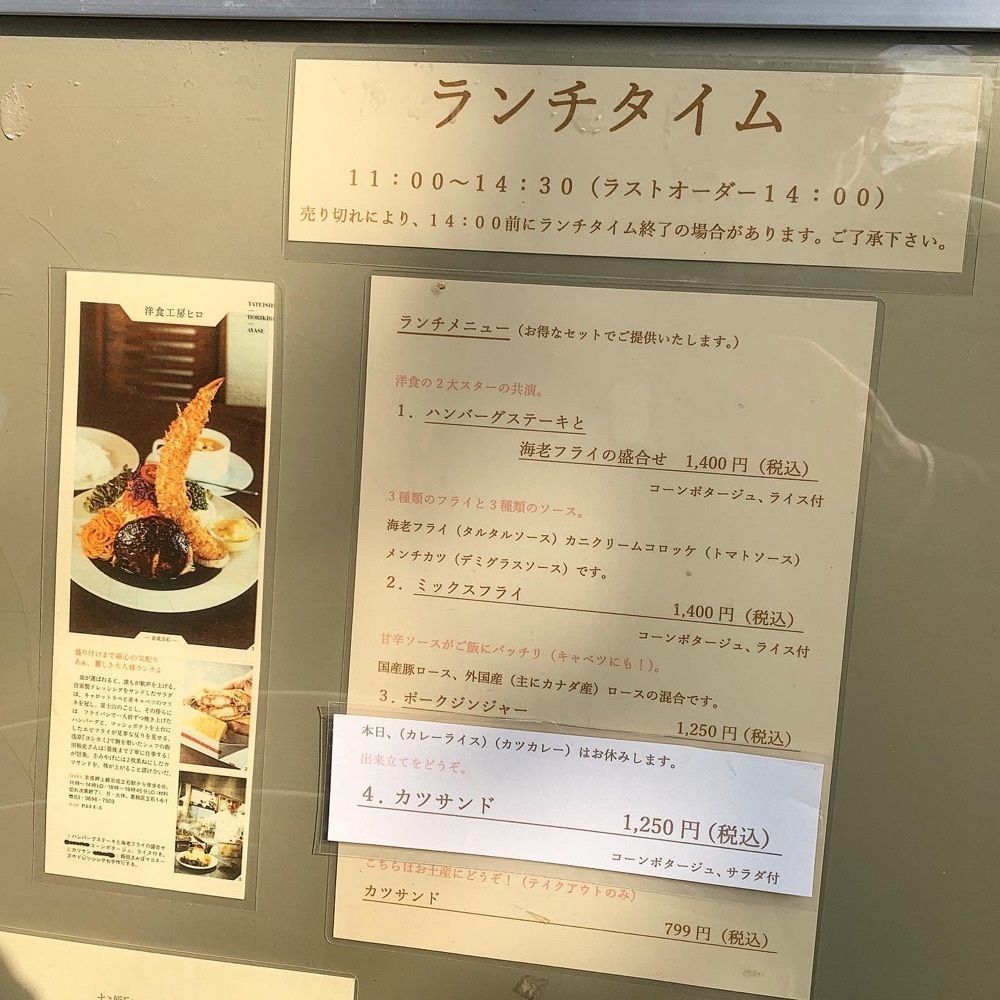 ランチタイム
11:00～14:30（ラストオーダー14:00）
売り切れにより、14:00前にランチタイム終了の場合があります。ご了承下さい。
洋食工房ヒロ
TATEISHI
HORIKIRI
AYASE
京成立石
盛り付けまで細心の気配り
ああ、麗しき大人様ランチよ
ランチメニュー（お得なセットでご提供いたします。）
洋食の2大スターの共演。
1．ハンバーグステーキと
海老フライの盛合せ 1,400円（税込）
コーンポタージュ、ライス付
3種類のフライと3種類のソース。
海老フライ（タルタルソース）カニクリームコロッケ（トマトソース）
メンチカツ（デミグラスソース）です。
2．ミックスフライ
1,400円（税込）
コーンポタージュ、ライス付
甘辛ソースがご飯にバッチリ（キャベツにも！）。
国産豚ロース、外国産（主にカナダ産）ロースの混合です。
3．ポークジンジャー
1,250円（税込）
本日、（カレーライス）（カツカレー）はお休みします。
出来立てをどうぞ。
4．カツサンド
1,250円（税込）
コーンポタージュ、サラダ付
こちらはお土産にどうぞ！（テイクアウトのみ）
カツサンド
799円（税込）